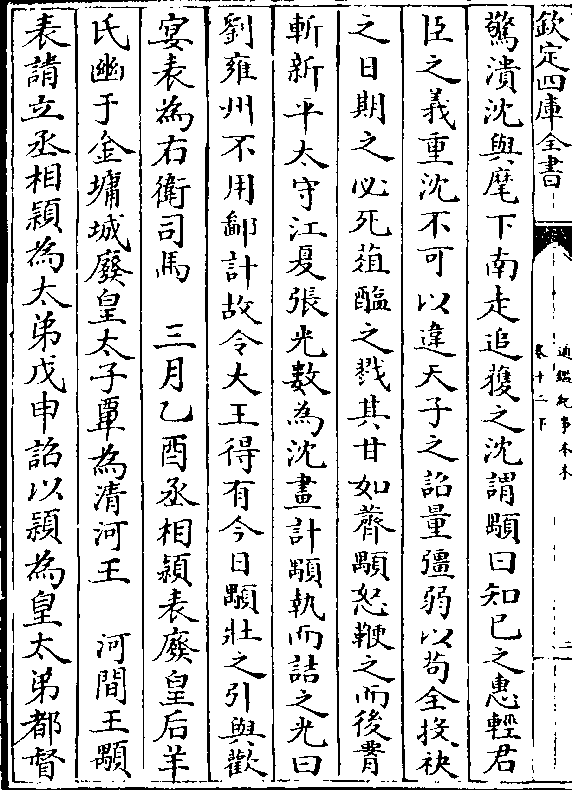 欽定四庫全書
通鑑紀事本末
卷十二下
二
驚潰沈與麾下南走追獲之沈謂顒曰知已之惠輕君
臣之義重沈不可以違天子之詔量彊弱以茍全投袂
之日期之必死葅醢之戮其甘如薺顒怒鞭之而後腰
斬新平太守江夏張光數為沈畫計顒執而詰之光曰
劉雍州不用鄙計故令大王得有今日顒壯之引與歡
宴表為右衛司馬　三月乙酉丞相穎表廢皇后羊
氏幽于金墉城廢皇太子覃為清河王　河間王顒
表請立丞相穎為太弟戊申詔以穎為皇太弟都督